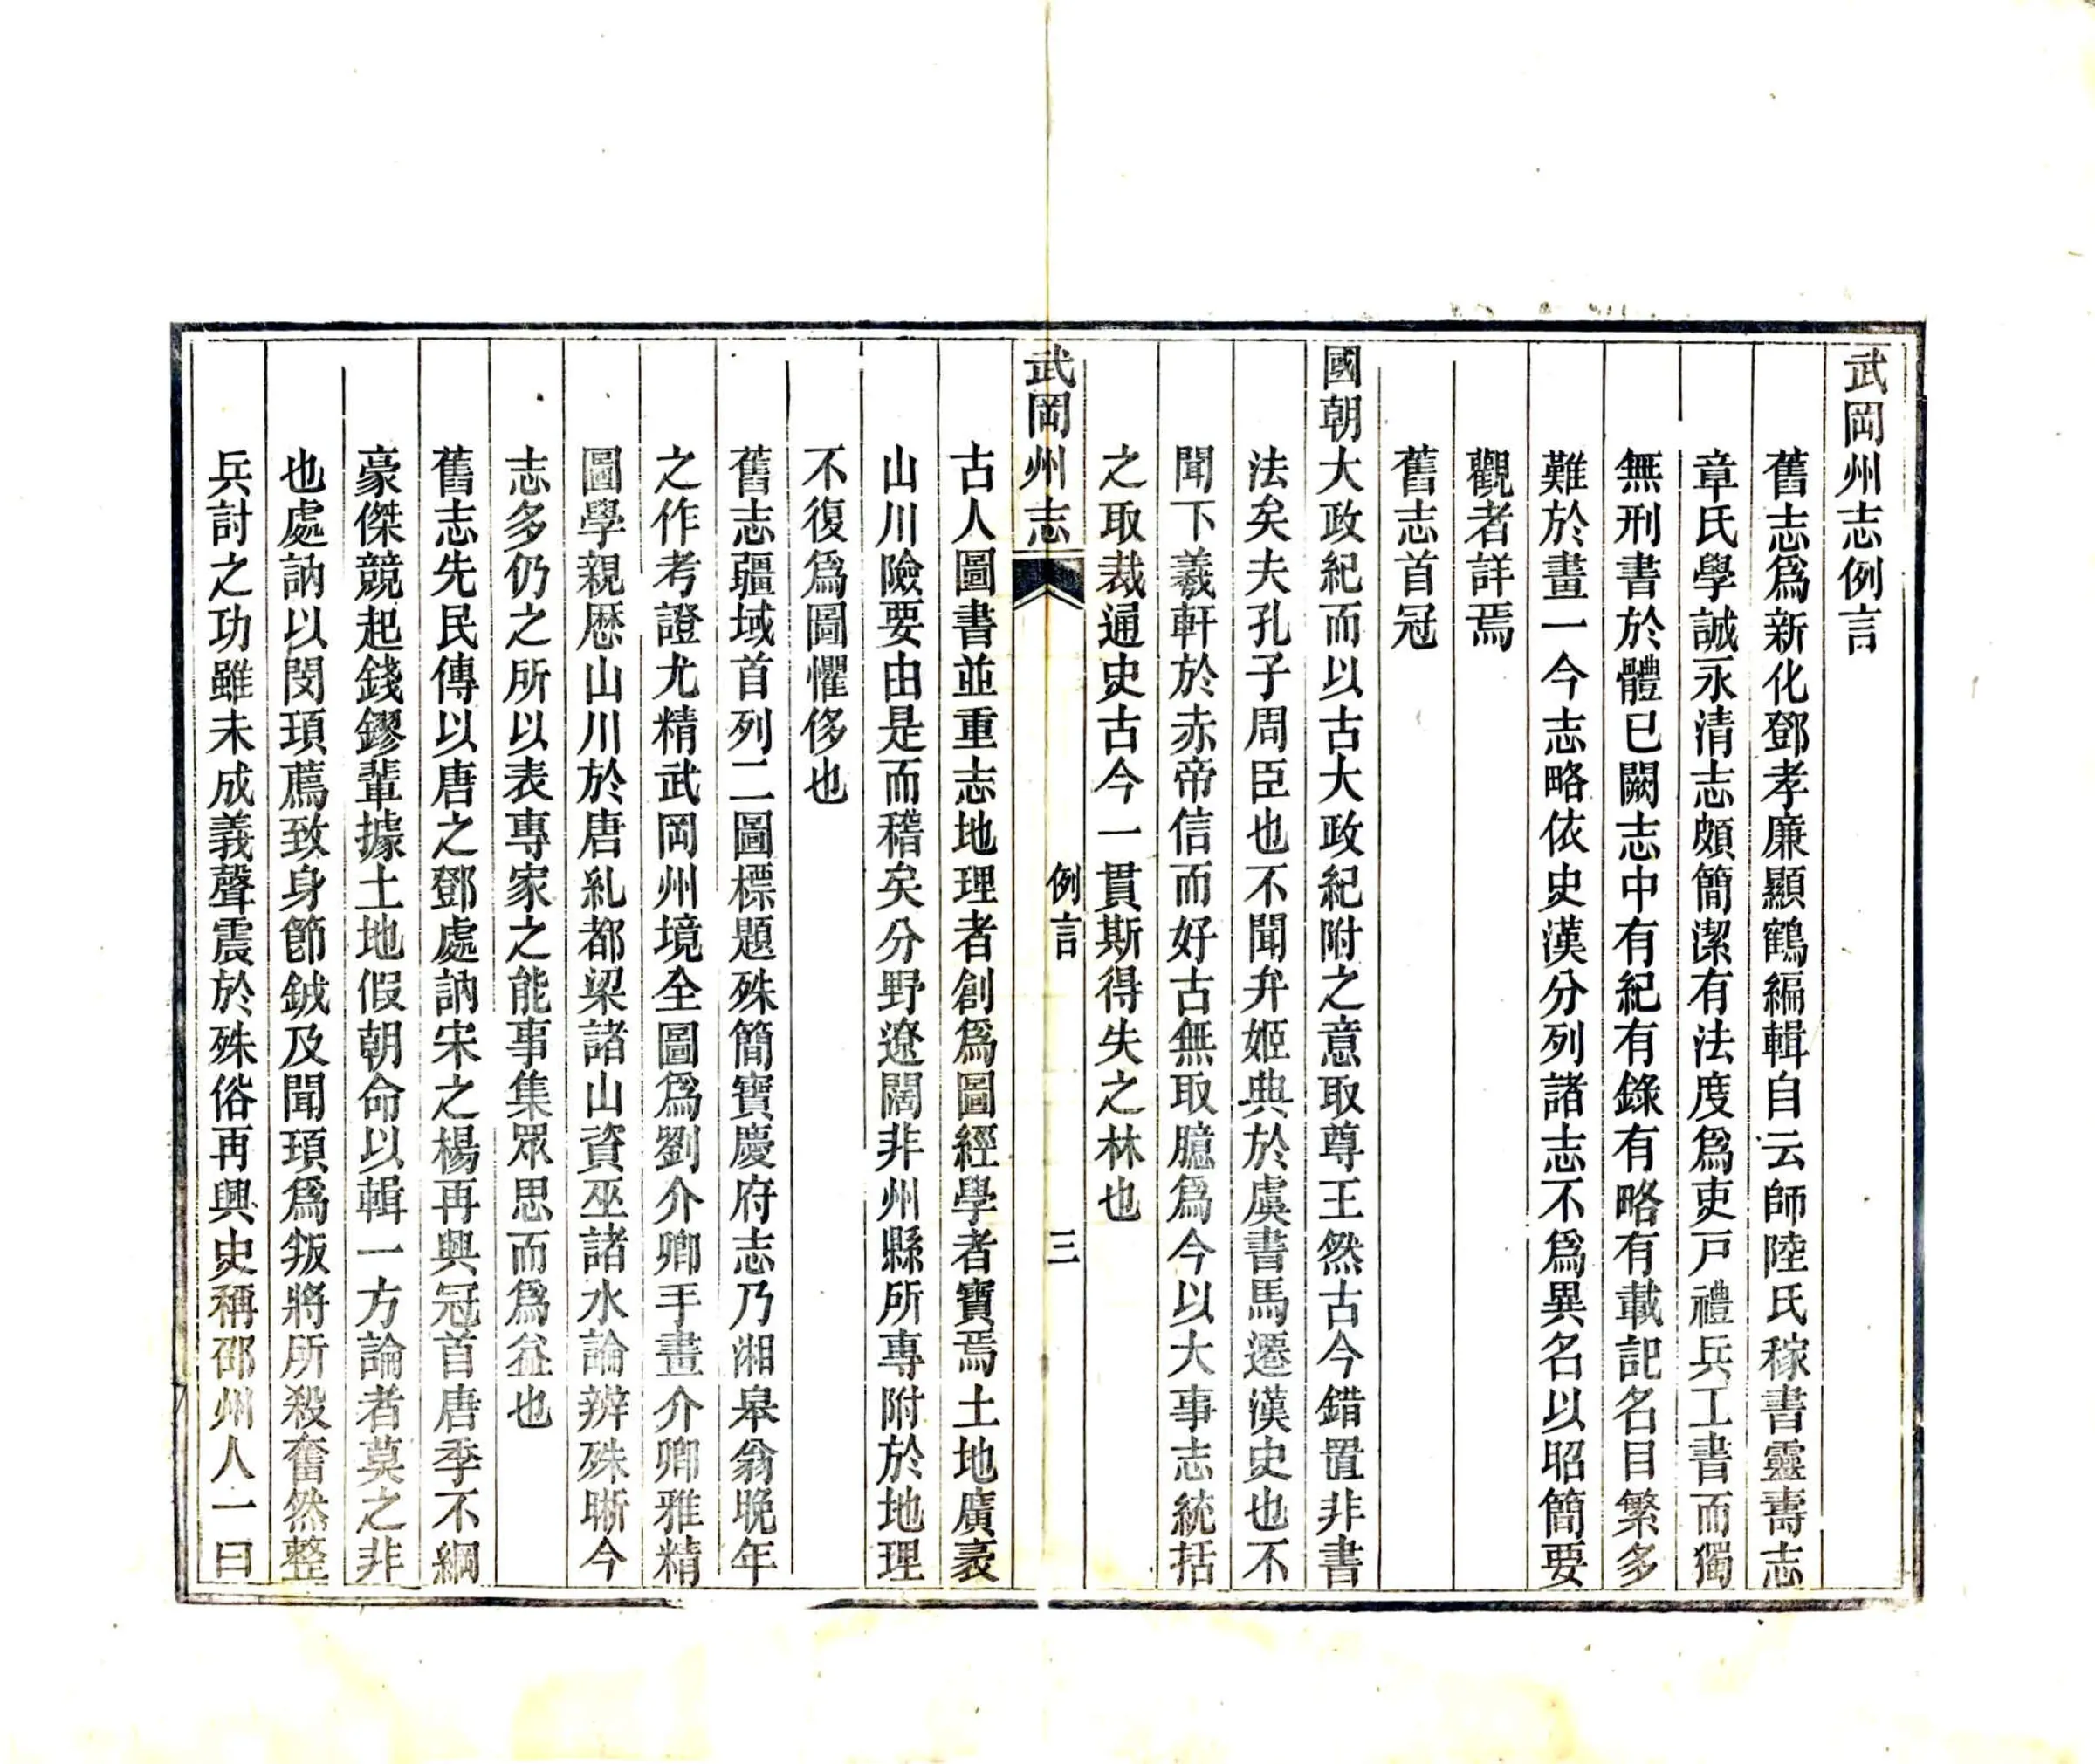 武岡州志例言
舊志爲新化鄧孝廉顯鶴編輯自云師陸氏稼書靈壽志
章氏學誠永清志頗簡潔有法度爲吏戸禮兵工書而獨
無刑書於體已闕志中有紀有錄有略有載記名目繁多
難於畫一今志略依史漢分列諸志不爲異名以昭簡要
觀者詳焉
舊志首冠
國朝大政紀而以古大政紀附之意取尊王然古今錯置非書
法矣夫孔子周臣也不聞弁姬典於虞書馬遷漢史也不
聞下羲軒於赤帝信而好古無取臆爲今以大事志統括
之取裁通史古今一貫斯得失之林也
武岡州志
例言
三
古人圖書並重志地理者創爲圖經學者寶焉土地廣袤
山川險要由是而稽矣分野遼闊非州縣所專附於地理
不復爲圖懼侈也
舊志疆域首列二圖標題殊簡寶慶府志乃湘皋翁晩年
之作考證尤精武岡州境全圖爲劉介卿手畫介卿雅精
圖學親歴山川於唐糺都梁諸山資巫諸水論辨殊晰今
志多仍之所以表專家之能事集眾思而爲益也
舊志先民傳以唐之鄧處訥宋之楊再興冠首唐季不綱
豪傑競起錢鏐輩據土地假朝命以輯一方論者莫之非
也處訥以閔頊薦致身節鉞及聞頊爲叛將所殺奮然整
兵討之功雖未成義聲震於殊俗再興史稱邵州人一曰